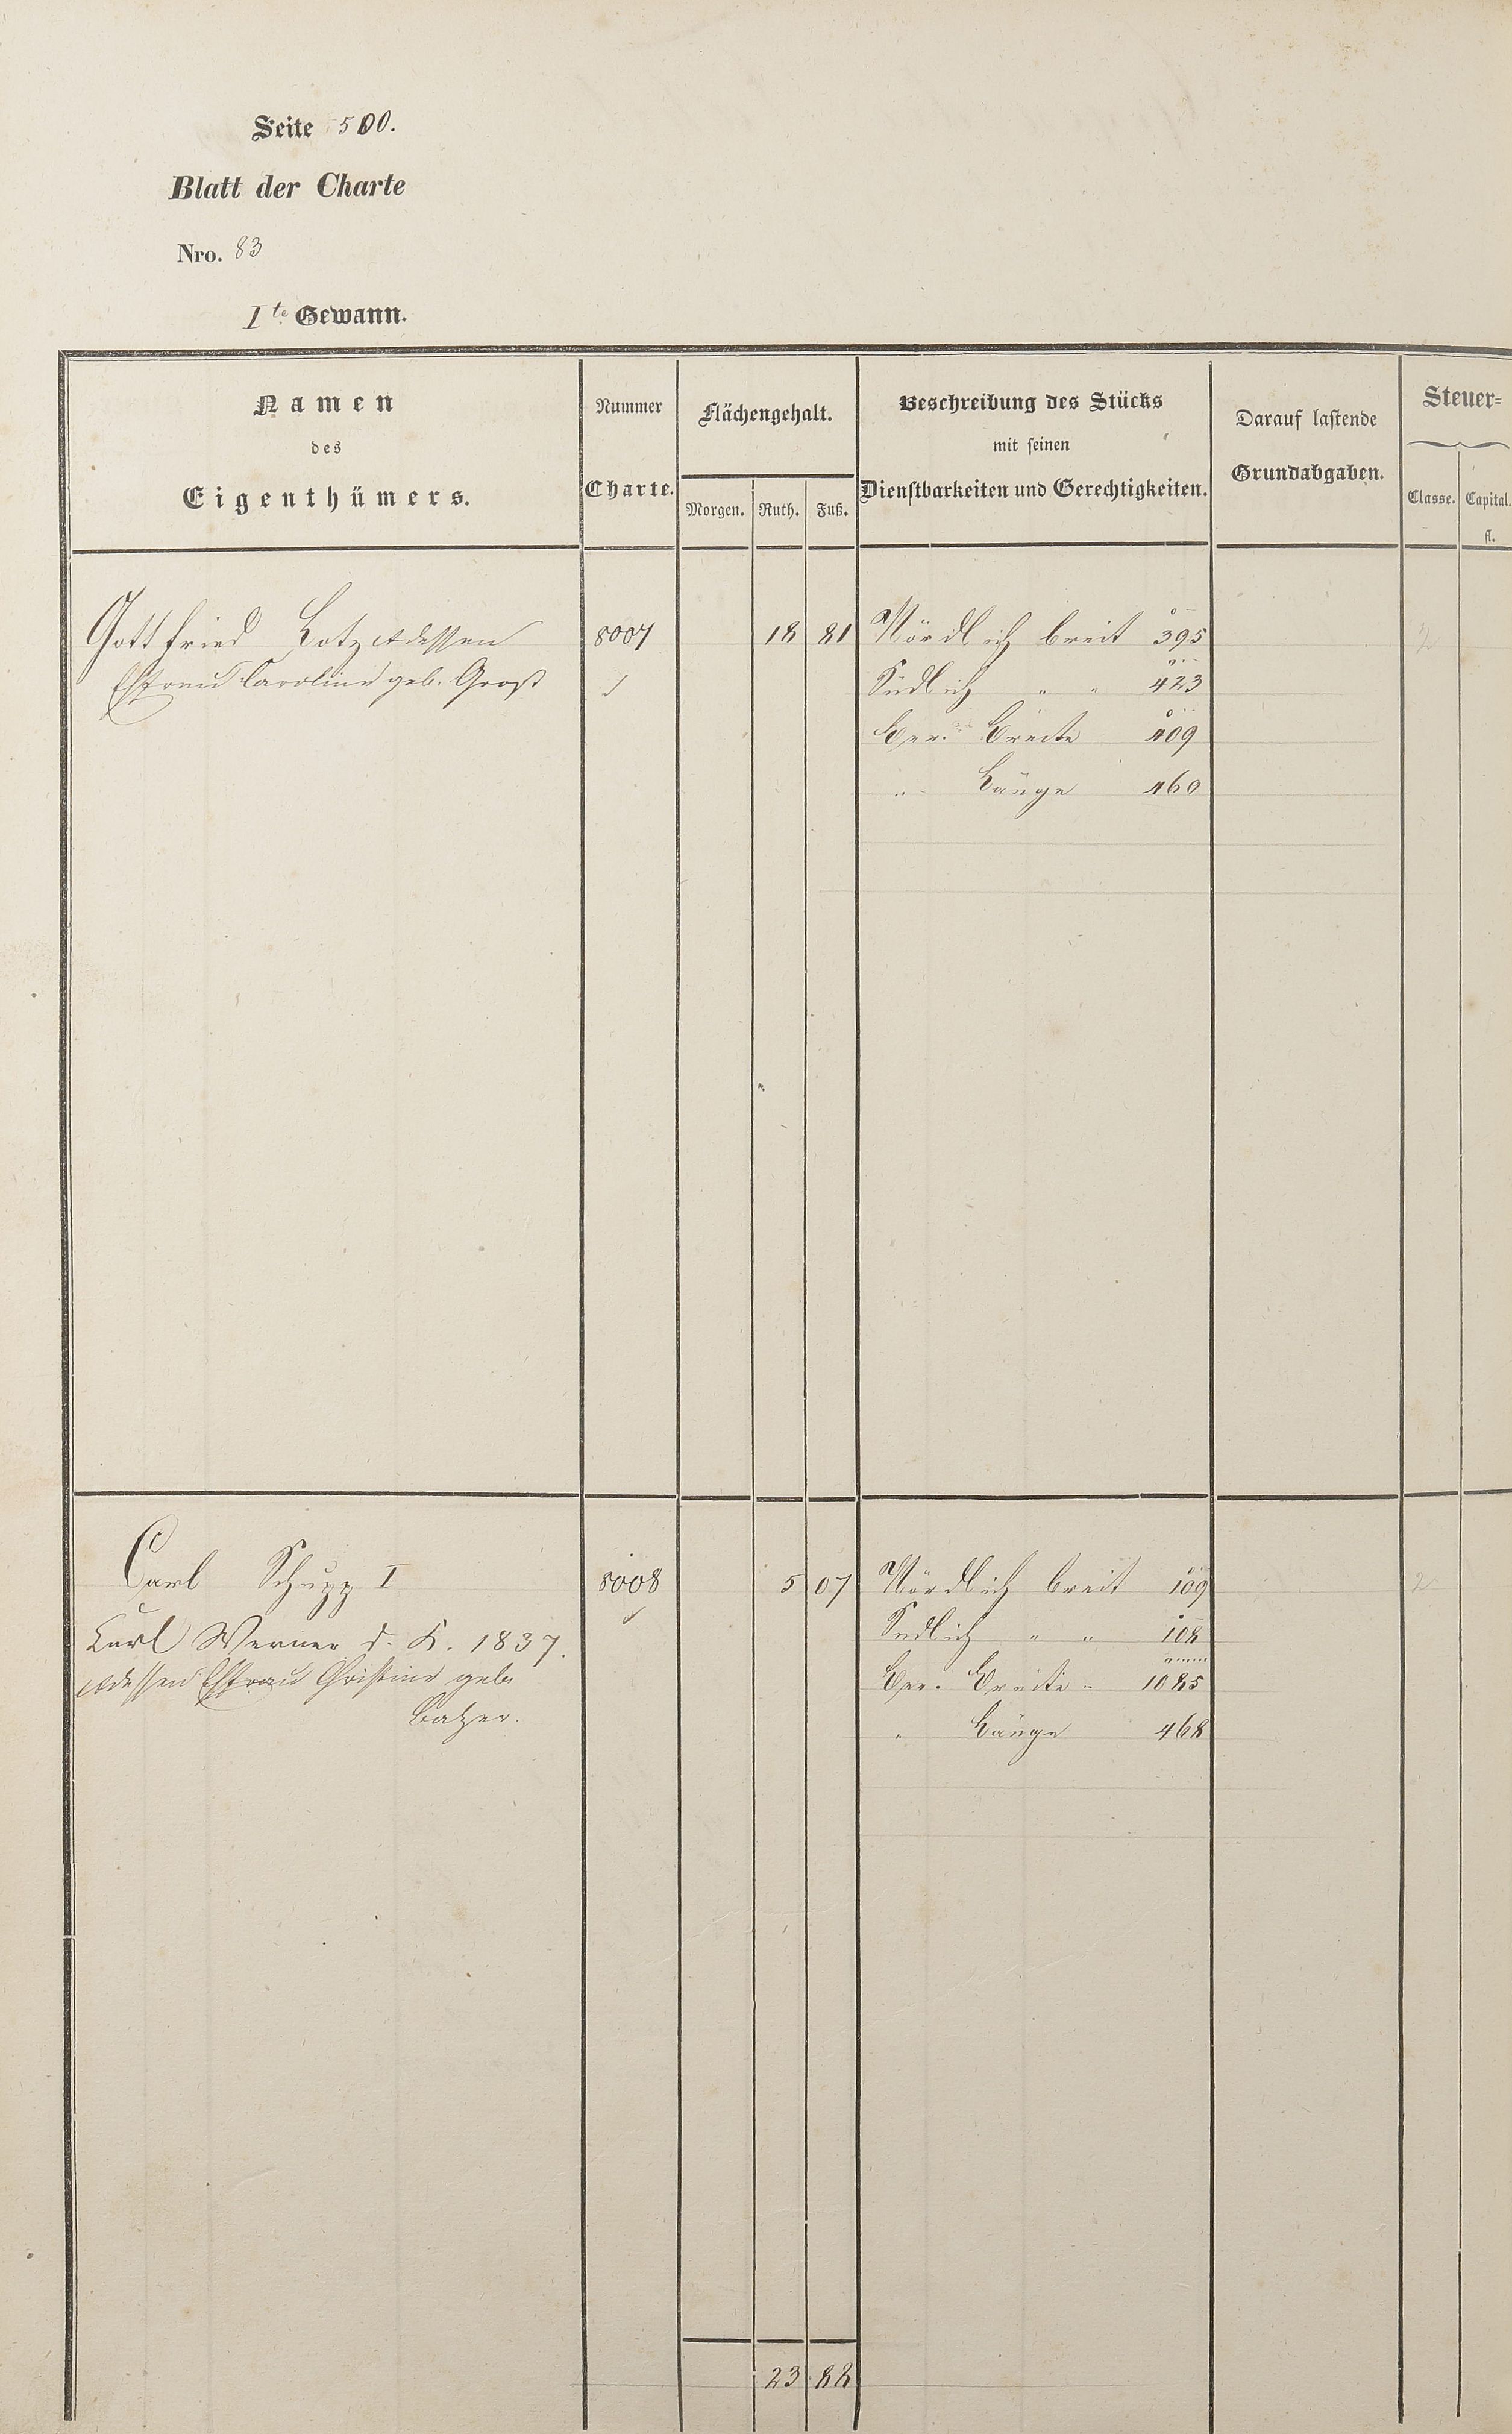 Seite 500.
Blatt der Charte
Nro. 83
Ite Gewann.
Namen des Eigenthümers.
Nummer Charte.
Flächengehalt.
Morgen. Ruth. Fuß.
Beschreibung des Stücks mit seinen Dienstbarkeiten und Gerechtigkeiten.
Darauf lastende Grundabgaben.
Steuer-
Classe. Capital. fl.
Gottfried Lotz & dessen 8007 18 81 Nördlich breit 395
Ehefrau Caroline geb. Groß Südlich " " 423
Ber. Breite 409
" Länge 460
Carl Schupp I 8008 5 07 Nördlich breit 109
Karl Werner d. K. 1837. Südlich " " 108
& dessen Ehefrau Christine geb. Ber. Breite " 1085
Balzer. " Länge 468
2
23 88